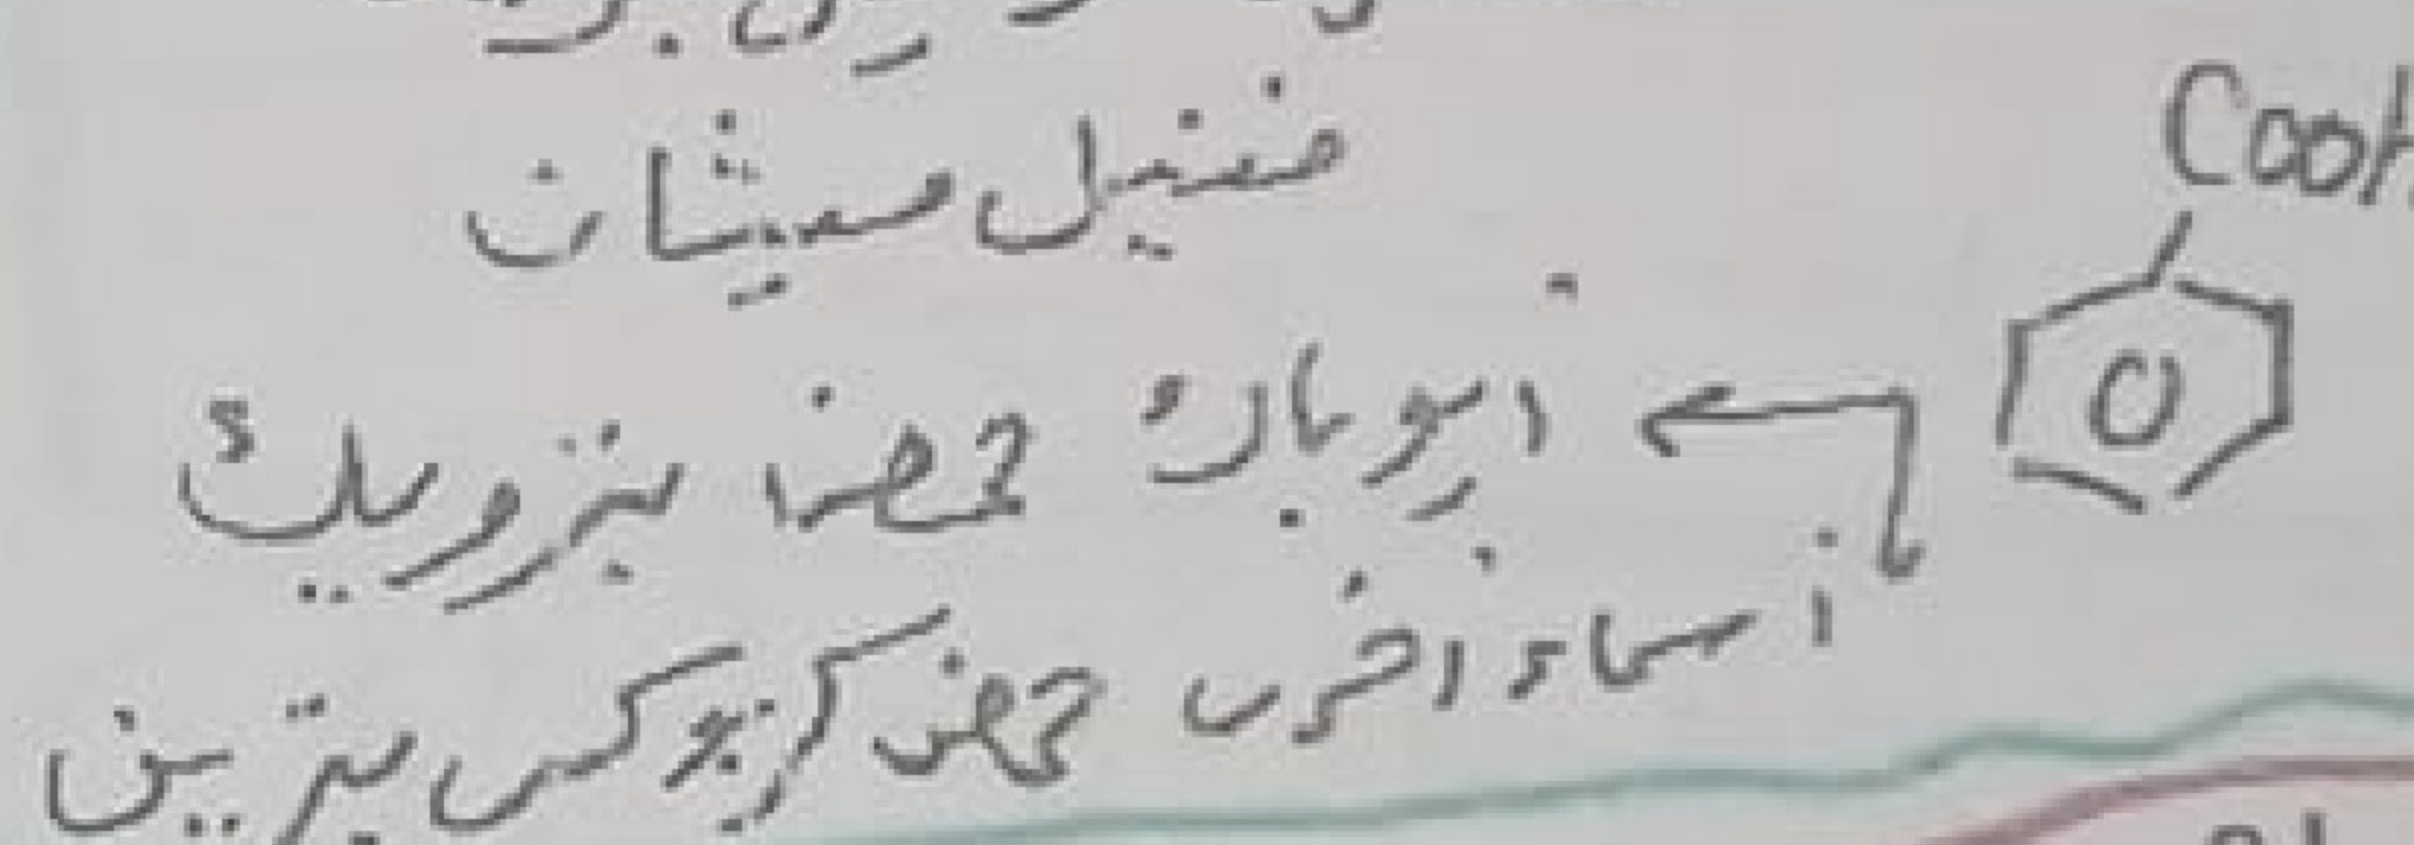 فنيل ميثان
COOH
أيوباك حمض بنزويك
أسماء اخرى حمض كربوكسى بنزين